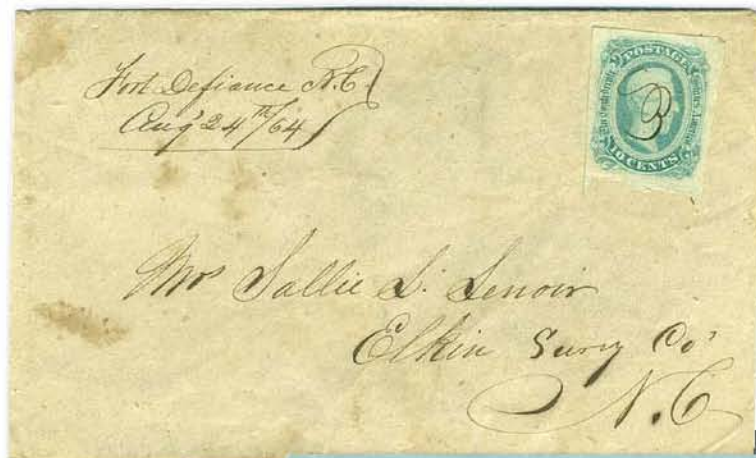 Fort Defiance N.C.
Aug 24th/64
POSTAGE
The Confederate States of America
10 CENTS
Mrs Sallie L. Lenoir
Elkin Surry Co
N.C